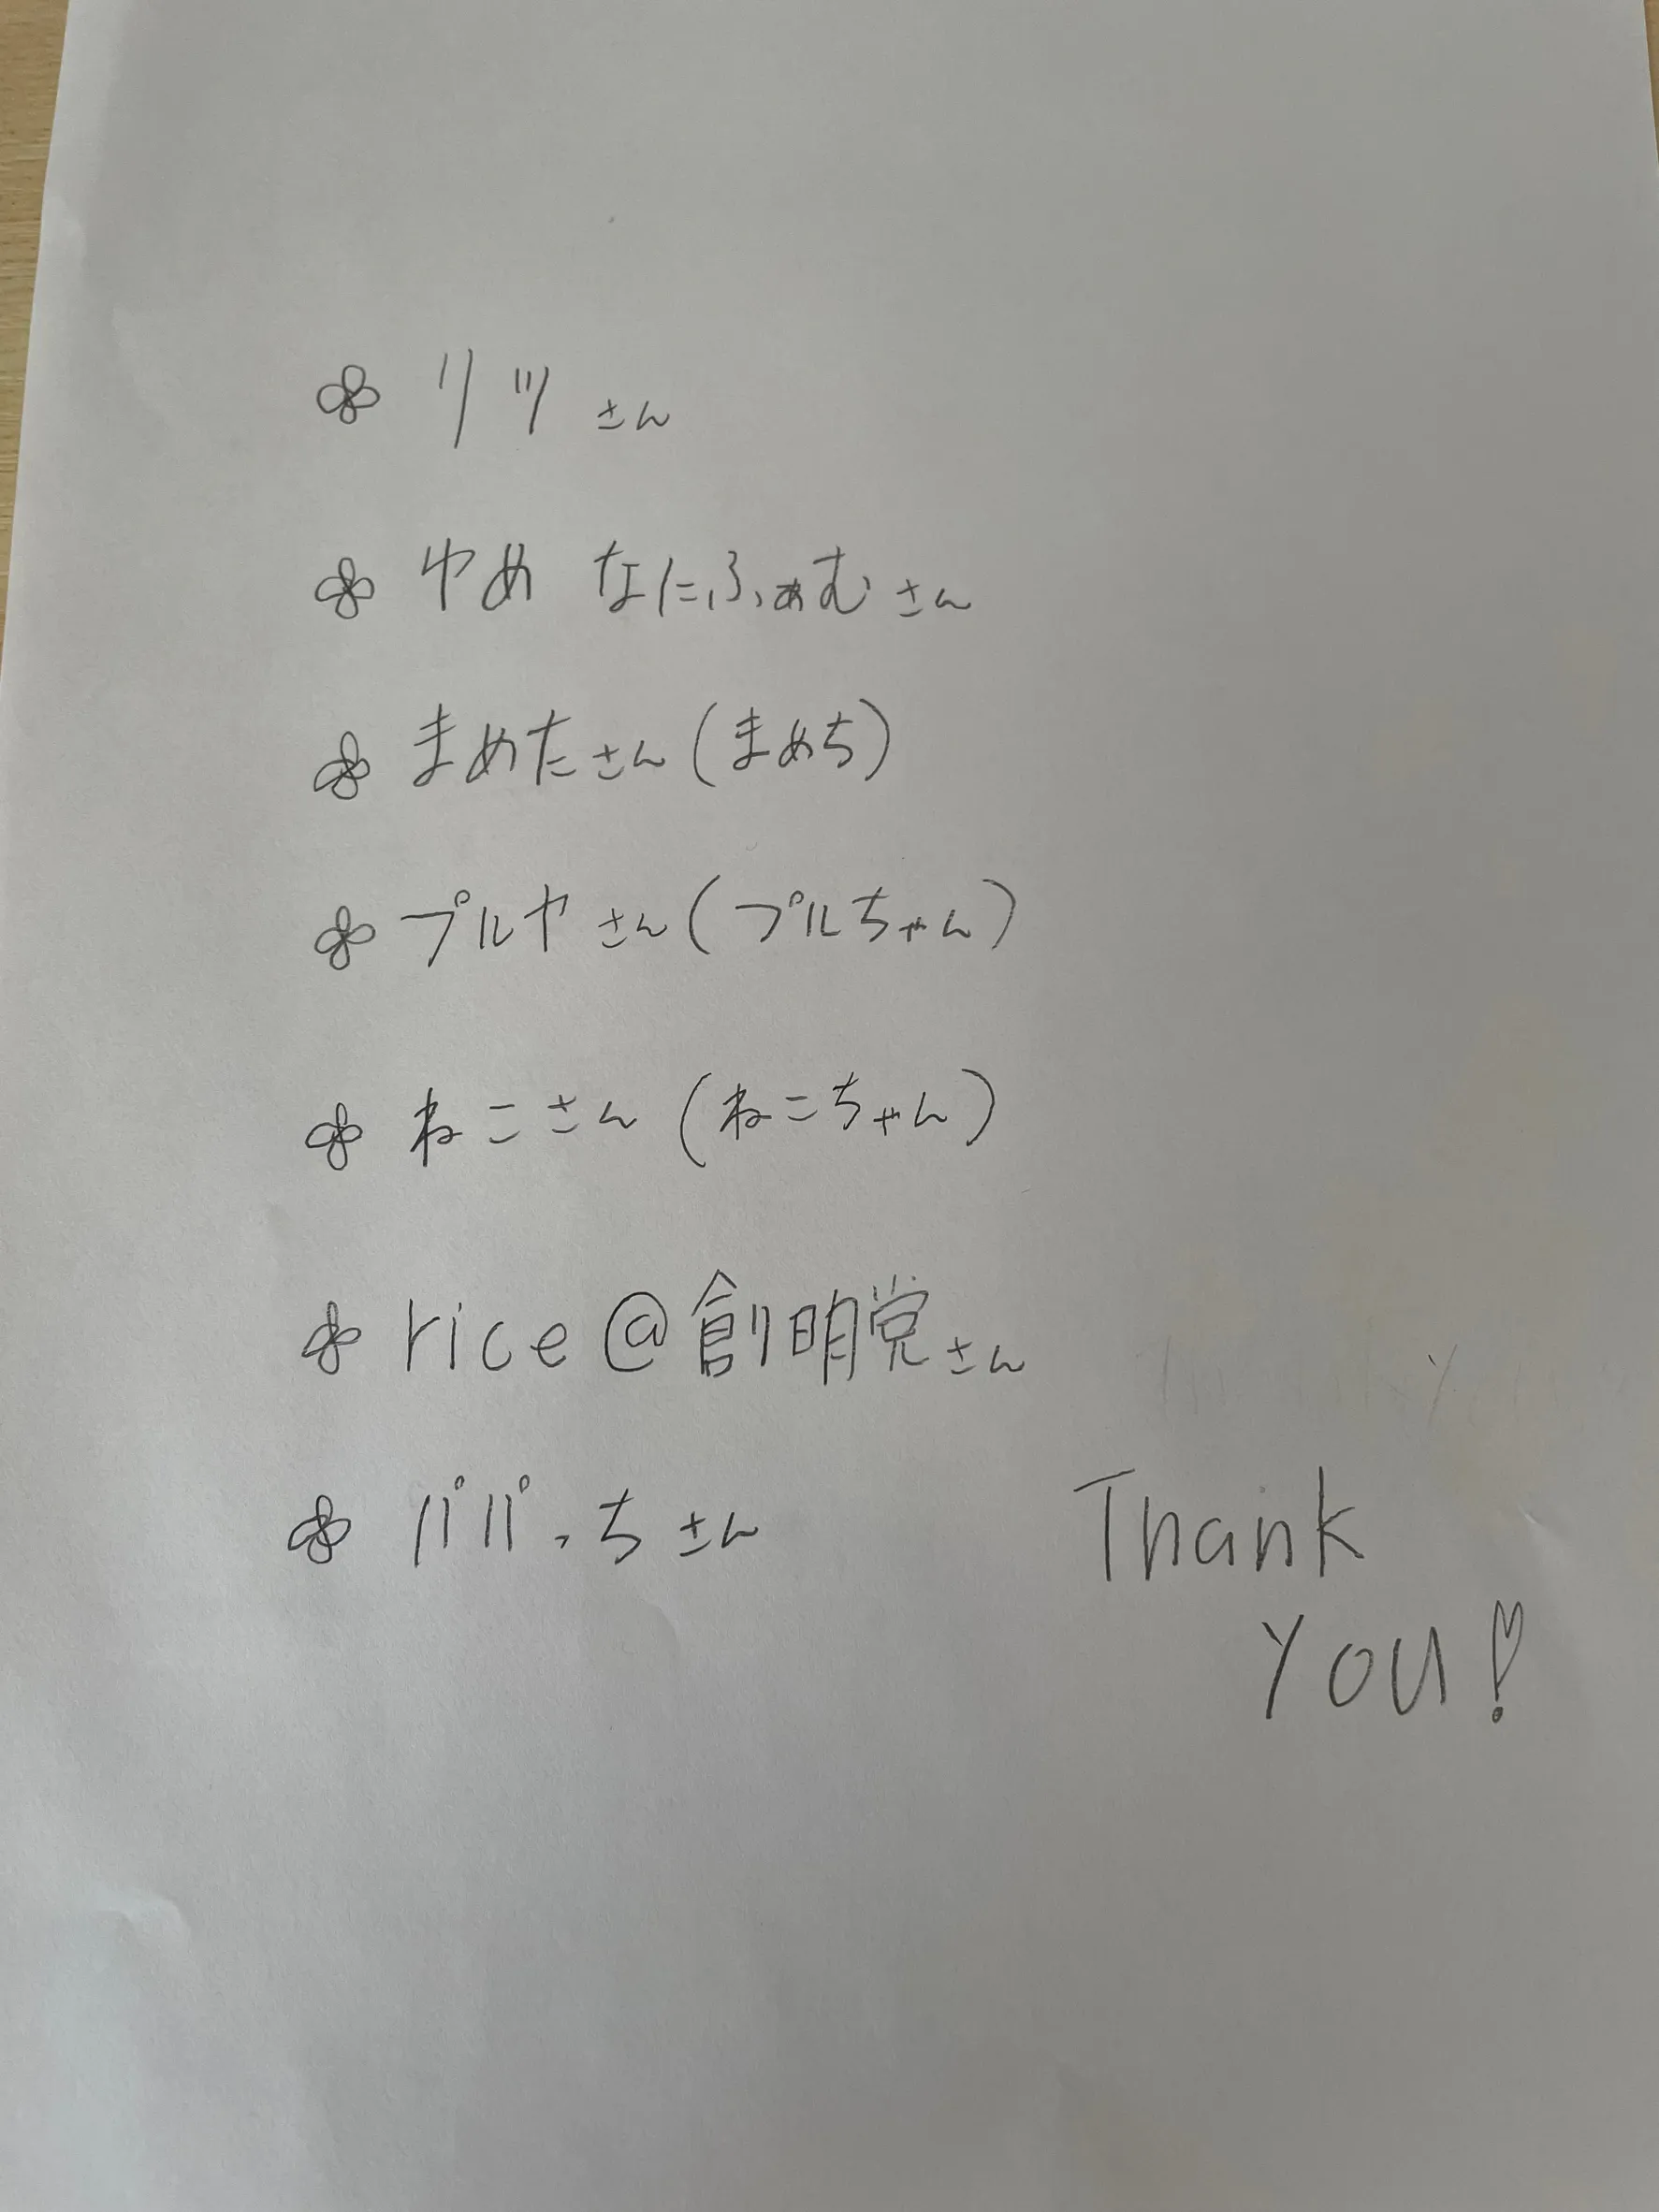 リツさん
ゆめ なにふぁむさん
まめたさん(まめち)
プルヤさん(プルちゃん)
ねこさん(ねこちゃん)
rice@創明党さん
パパっちさん
Thank
you!